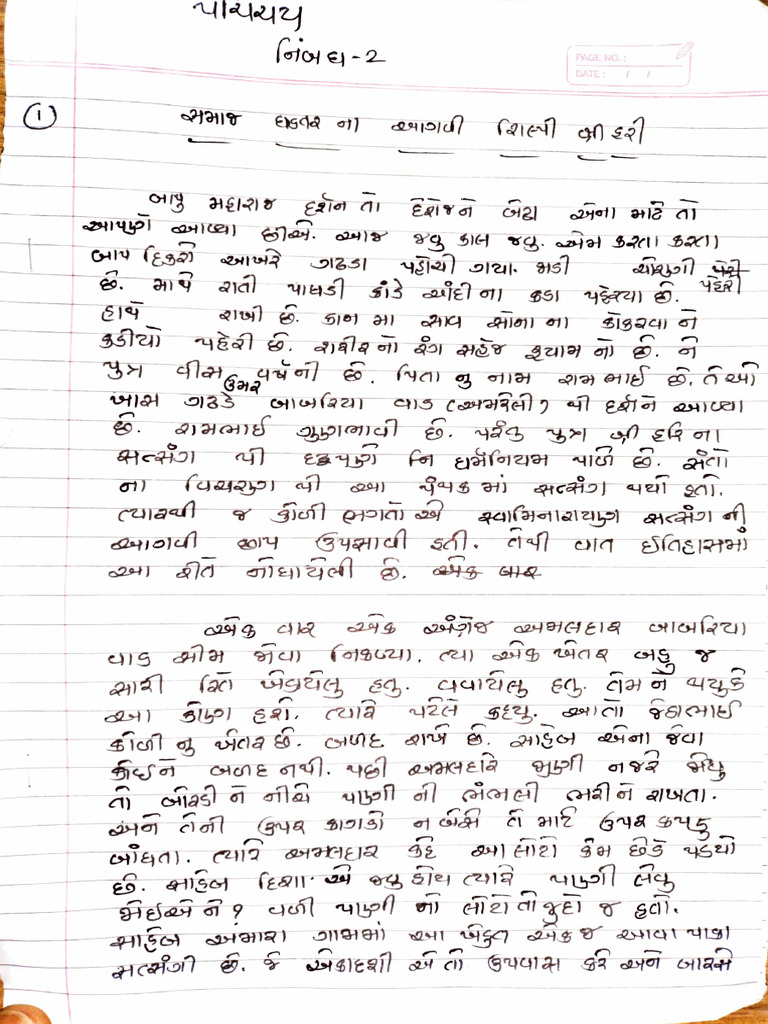 પરિચય
નિંબધ - 2
PAGE NO.:
DATE: / /
① સમાજ ઘડતર ના આગવી શિલ્પી શ્રી હરી
બાપુ મહારાજ દર્શન તો દેશેજને બેટા એના માટે તો
આપણે આવ્યા છીએ. આજ જવુ કાલ જવુ. એમ કરતા કરતા
બાપ દિકરો આખરે ગઢડા પહોચી ગયા. જાડી ચોરણી પહેરી
છે. માથે રાતી પાઘડી કાંડે ચાંદીના કડા પહેરયા છે.
હાથે રાખી છે. કાન મા સાવ સોના ના કોકરવા ને
કડીયો પહેરી છે. શરીરનો રંગ સહેજ શ્યામ નો છે. ને
પુત્ર વીસ વર્ષની ઉમર છે. પિતા નુ નામ રામભાઈ છે. તેઓ
ખાસ ગઢડે બાબરિયા વાડ (અમરેલી) થી દર્શને આવ્યા
છે. રામભાઈ ગુણભાવી છે. પરંતુ પુત્ર શ્રી હરિ ના
સત્સંગ થી દ્રઢપણે નિ ધર્મનિયમ પાળે છે. સંતો
ના વિચરણ થી આ પંથકમાં સત્સંગ થયો હતો.
ત્યારથી જ કોળી ભગતો એ સ્વામિનારાયણ સત્સંગ ની
આગવી છાપ ઉપસાવી હતી. તેથી વાત ઈતિહાસમાં
આ રીતે નોધાયેલી છે. એક વાર
એક વાર એક અંગ્રેજ અમલદાર બાબરિયા
વાડ સીમ જોવા નિકળ્યા. ત્યા એક ખેતર બહુ જ
સારી રિતે ખેડાયેલુ હતુ. વવાયેલુ હતુ. તેમ ને થયુકે
આ કોણ હશે. ત્યારે પટેલે કહ્યુ. આતો જેઠાભાઈ
કોળી નુ ખેતર છે. બળદ રાખે છે. સાહેબ એના જેવા
કોઈને બળદ નથી. પછી અમલદારે ઝીણી નજરે જોયુ
તો બોરડી ને નીચે પાણી ની ભંભલી ભરીને રાખતા.
અને તેની ઉપર કાગડો ન બેસે તે માટે ઉપર કપડુ
બાંધતા. ત્યારે અમલદાર કહે આ લોટો કેમ છેડે પડયો
છે. સાહેબ દિશા એ જવુ હોય ત્યારે પાણી લેવુ
જોઈએ ને? વળી પાણી નો લોટો તો જુદો જ હતો.
સાહેબ અમારા ગામમાં આ ખેડુત એક જ આવા પાકા
સત્સંગી છે. જે એકાદશી એ તો ઉપવાસ કરે અને બારસે